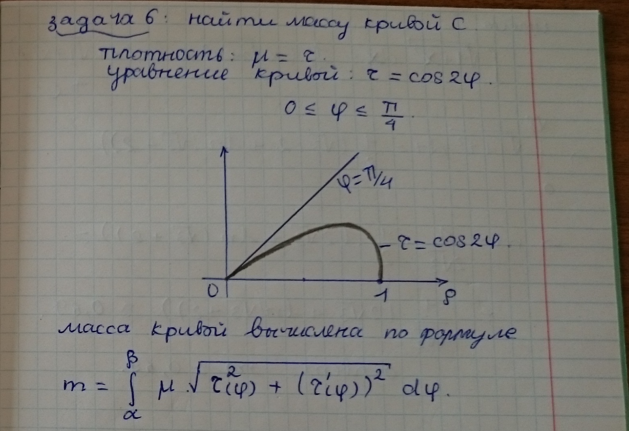 задача 6: найти массу кривой C
плотность: μ = τ.
уравнение кривой: τ = cos2φ.
0 ≤ φ ≤ π/4.
φ=π/4
τ = cos2φ.
0
1
ρ
масса кривой вычислена по формуле
m = ∫_α^β μ √(τ²(φ) + (τ'(φ))²) dφ.